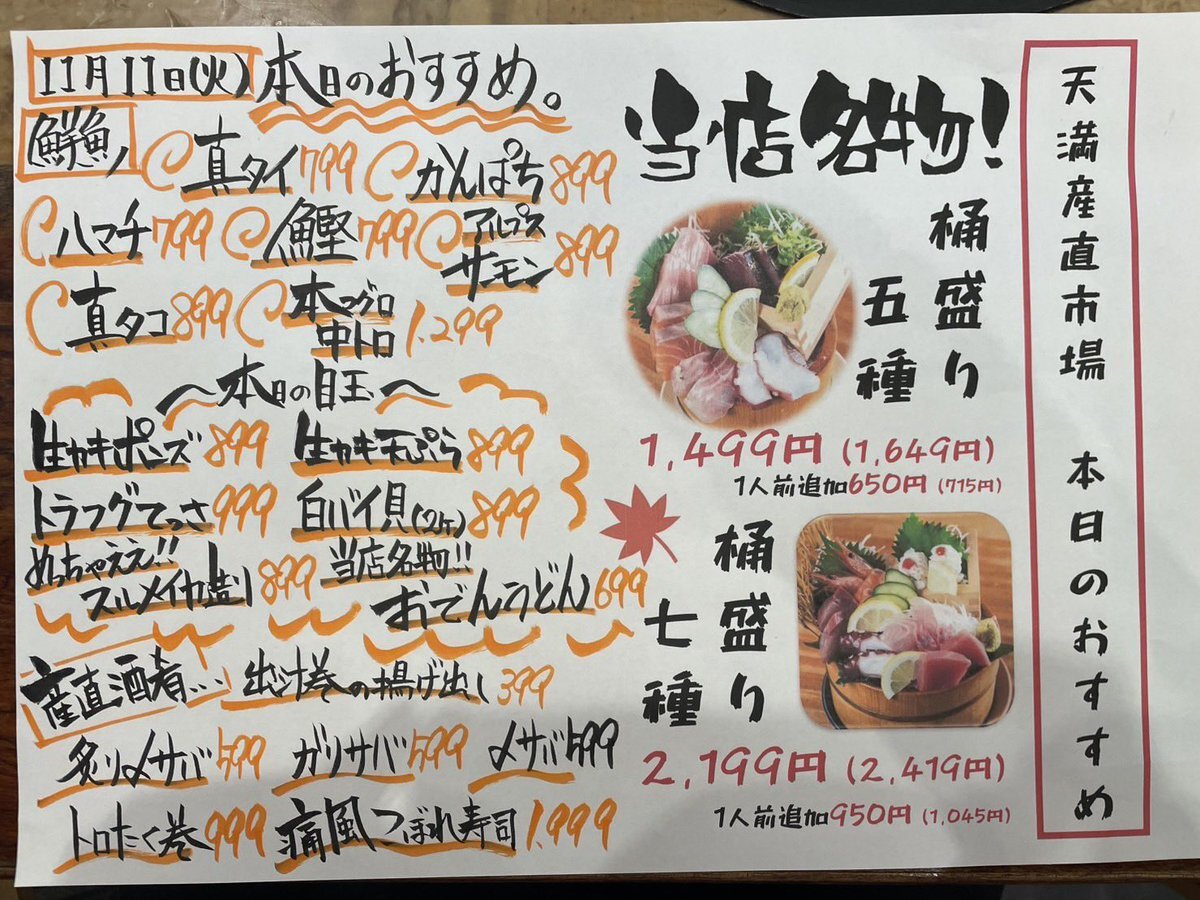 11月11日(火)本日のおすすめ。
鮮魚
真タイ 799 かんぱち 899
ハマチ 799 鰹 799 アルプスサーモン 899
真タコ 899 本マグロ中トロ 1.299
〜本日の目玉〜
生カキポン酢 899 生カキ天ぷら 899
トラフグてっさ 999 白バイ貝(2ヶ) 899
めっちゃええ!! スルメイカ造り 899 当店名物!! おでんうどん 699
産直酒肴... 出汁巻の揚げ出し 399
炙り〆サバ 599 ガリサバ 599 〆サバ 599
トロたく巻 999 痛風つぼれ寿司 1.999
当店名物!
桶盛り
五種
1,499円(1,649円)
1人前追加650円(715円)
桶盛り
七種
2,199円(2,419円)
1人前追加950円(1,045円)
天満産直市場 本日のおすすめ